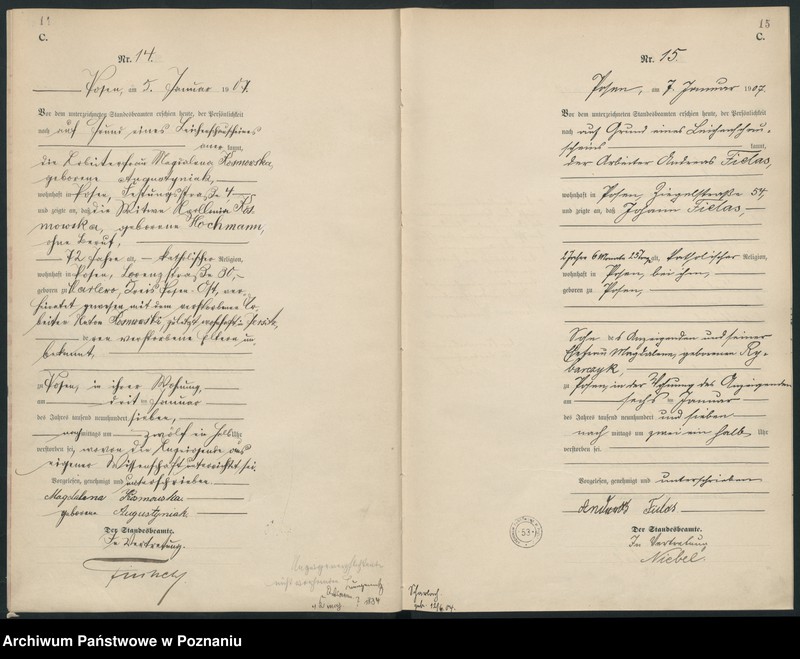 14
C.
Nr. 14.
Posen, am 5. Januar 1907.
Vor dem unterzeichneten Standesbeamten erschien heute, der Persönlichkeit
nach auf Grund eines Leichenschauscheins
kannt,
die Arbeiterfrau Magdalena Kosmowska,
geborene Augustyniak,
wohnhaft in Posen, Festungsstraße 4
und zeigte an, daß die Witwe
mowska, geborene Hochmann,
ohne Beruf,
72 Jahre alt, katholischer Religion,
wohnhaft in Posen, Lorenzstraße 30,
geboren zu Kreis Posen-Ost, ver-
heiratet gewesen mit dem verstorbenen Ar-
beiter Kosmowski, zuletzt wohnhaft in
deren verstorbene Eltern un-
bekannt,
zu Posen, in ihrer Wohnung,
am drit ten Januar
des Jahres tausend neunhundert sieben,
nachmittags um zwölf ein halb Uhr
verstorben sei, wovon die Anzeigende aus
eigener Wissenschaft unterrichtet sei.
Vorgelesen, genehmigt und unterschrieben
Magdalena Kosmowska
geborene Augustyniak
Der Standesbeamte.
In Vertretung.
15
C.
Nr. 15.
Posen, am 7. Januar 1907.
Vor dem unterzeichneten Standesbeamten erschien heute, der Persönlichkeit
nach auf Grund eines Leichenschau-
scheins kannt,
der Arbeiter Andreas Fielas,
wohnhaft in Posen, Ziegelstraße 54,
und zeigte an, daß Johann Fielas,
2 Jahre 6 Monate 23 Tage alt, katholischer Religion,
wohnhaft in Posen, bei ihm,
geboren zu Posen,
Sohn des Anzeigenden und seiner
Ehefrau Magdalena, geborenen Ry-
barczyk,
zu Posen, in der Wohnung des Anzeigenden
am sechs ten Januar
des Jahres tausend neunhundert und sieben
nach mittags um zwei ein halb Uhr
verstorben sei.
Vorgelesen, genehmigt und unterschrieben
Andreas Fielas
Der Standesbeamte.
In Vertretung
Niebel.
53
Archiwum Państwowe w Poznaniu